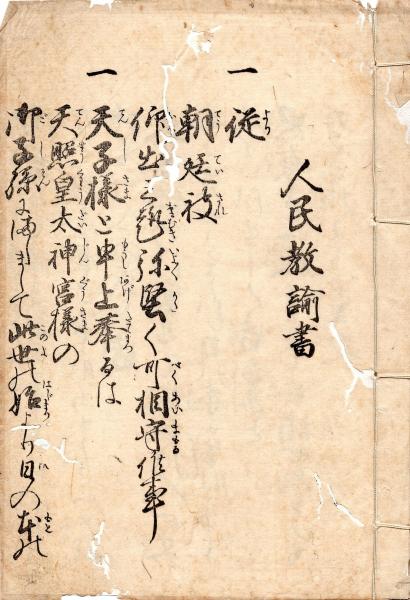 人民教諭書
一 従
朝廷被
仰出之趣弥堅く可相守候事
一 天子様と申上奉るは
天照皇太神宮様の
御子孫にましまして此世の始より日の本の